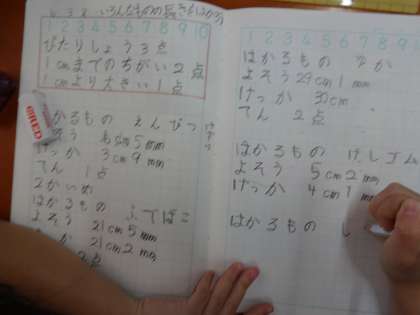 いろんなものの長さをはかろう
1 2 3 4 5 6 7 8 9 10
ぴたりしょう3点
1cmまでのちがい2点
1cmより大きい1点
かるもの えんぴつ
そう 5mm
けっか 3cm9mm
てん 1点
2かいめ
はかるもの ふでばこ
よそう 21cm5mm
か 21cm2mm
点
1 2 3 4 5 6 7 8 9
はかるもの
よそう 29cm1mm
けっか 30cm
てん 2点
はかるもの けしゴム
よそう 5cm2mm
けっか 4cm1mm
はかるもの し